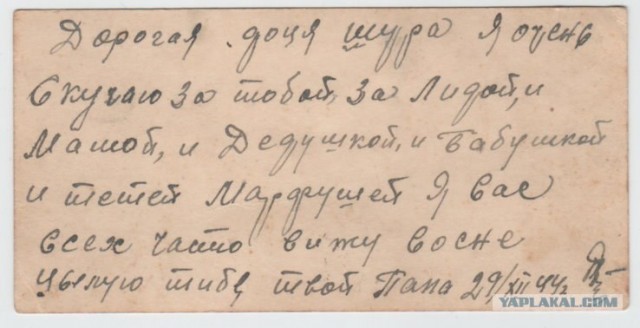 Дорогая доця шура я очень
Скучаю за тобой, за Лидой, и
Машой, и Дедушкой, и Бабушкой
и тетей Марфушей Я вас
всех часто вижу восне
Цылую тибе, твой Папа 29/XII 44г
YAPLAKAL.COM